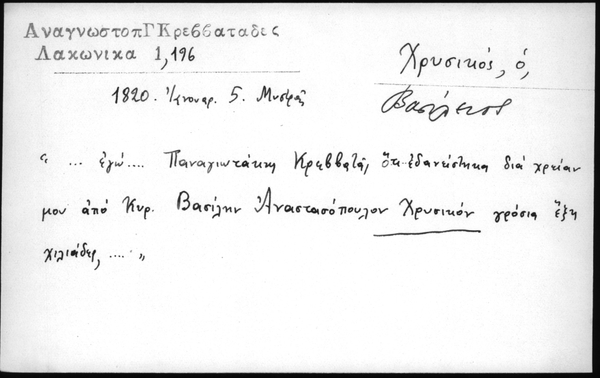 ΑναγνωστοπΓΚρεββαταδες
Λακωνικα 1,196
Χρυσικός, ὁ,
1820. Ἰανουαρ. 5. Μυστρᾶς
Βασίλειος
« ... ἐγώ .... Παναγιωτάκης Κρεββατᾶς, ὅτι ἐδανείστηκα διά χρείαν
μου ἀπό Κυρ. Βασίλην Ἀναστασόπουλον Χρυσικόν γρόσια ἕξη
χιλιάδες, .... »